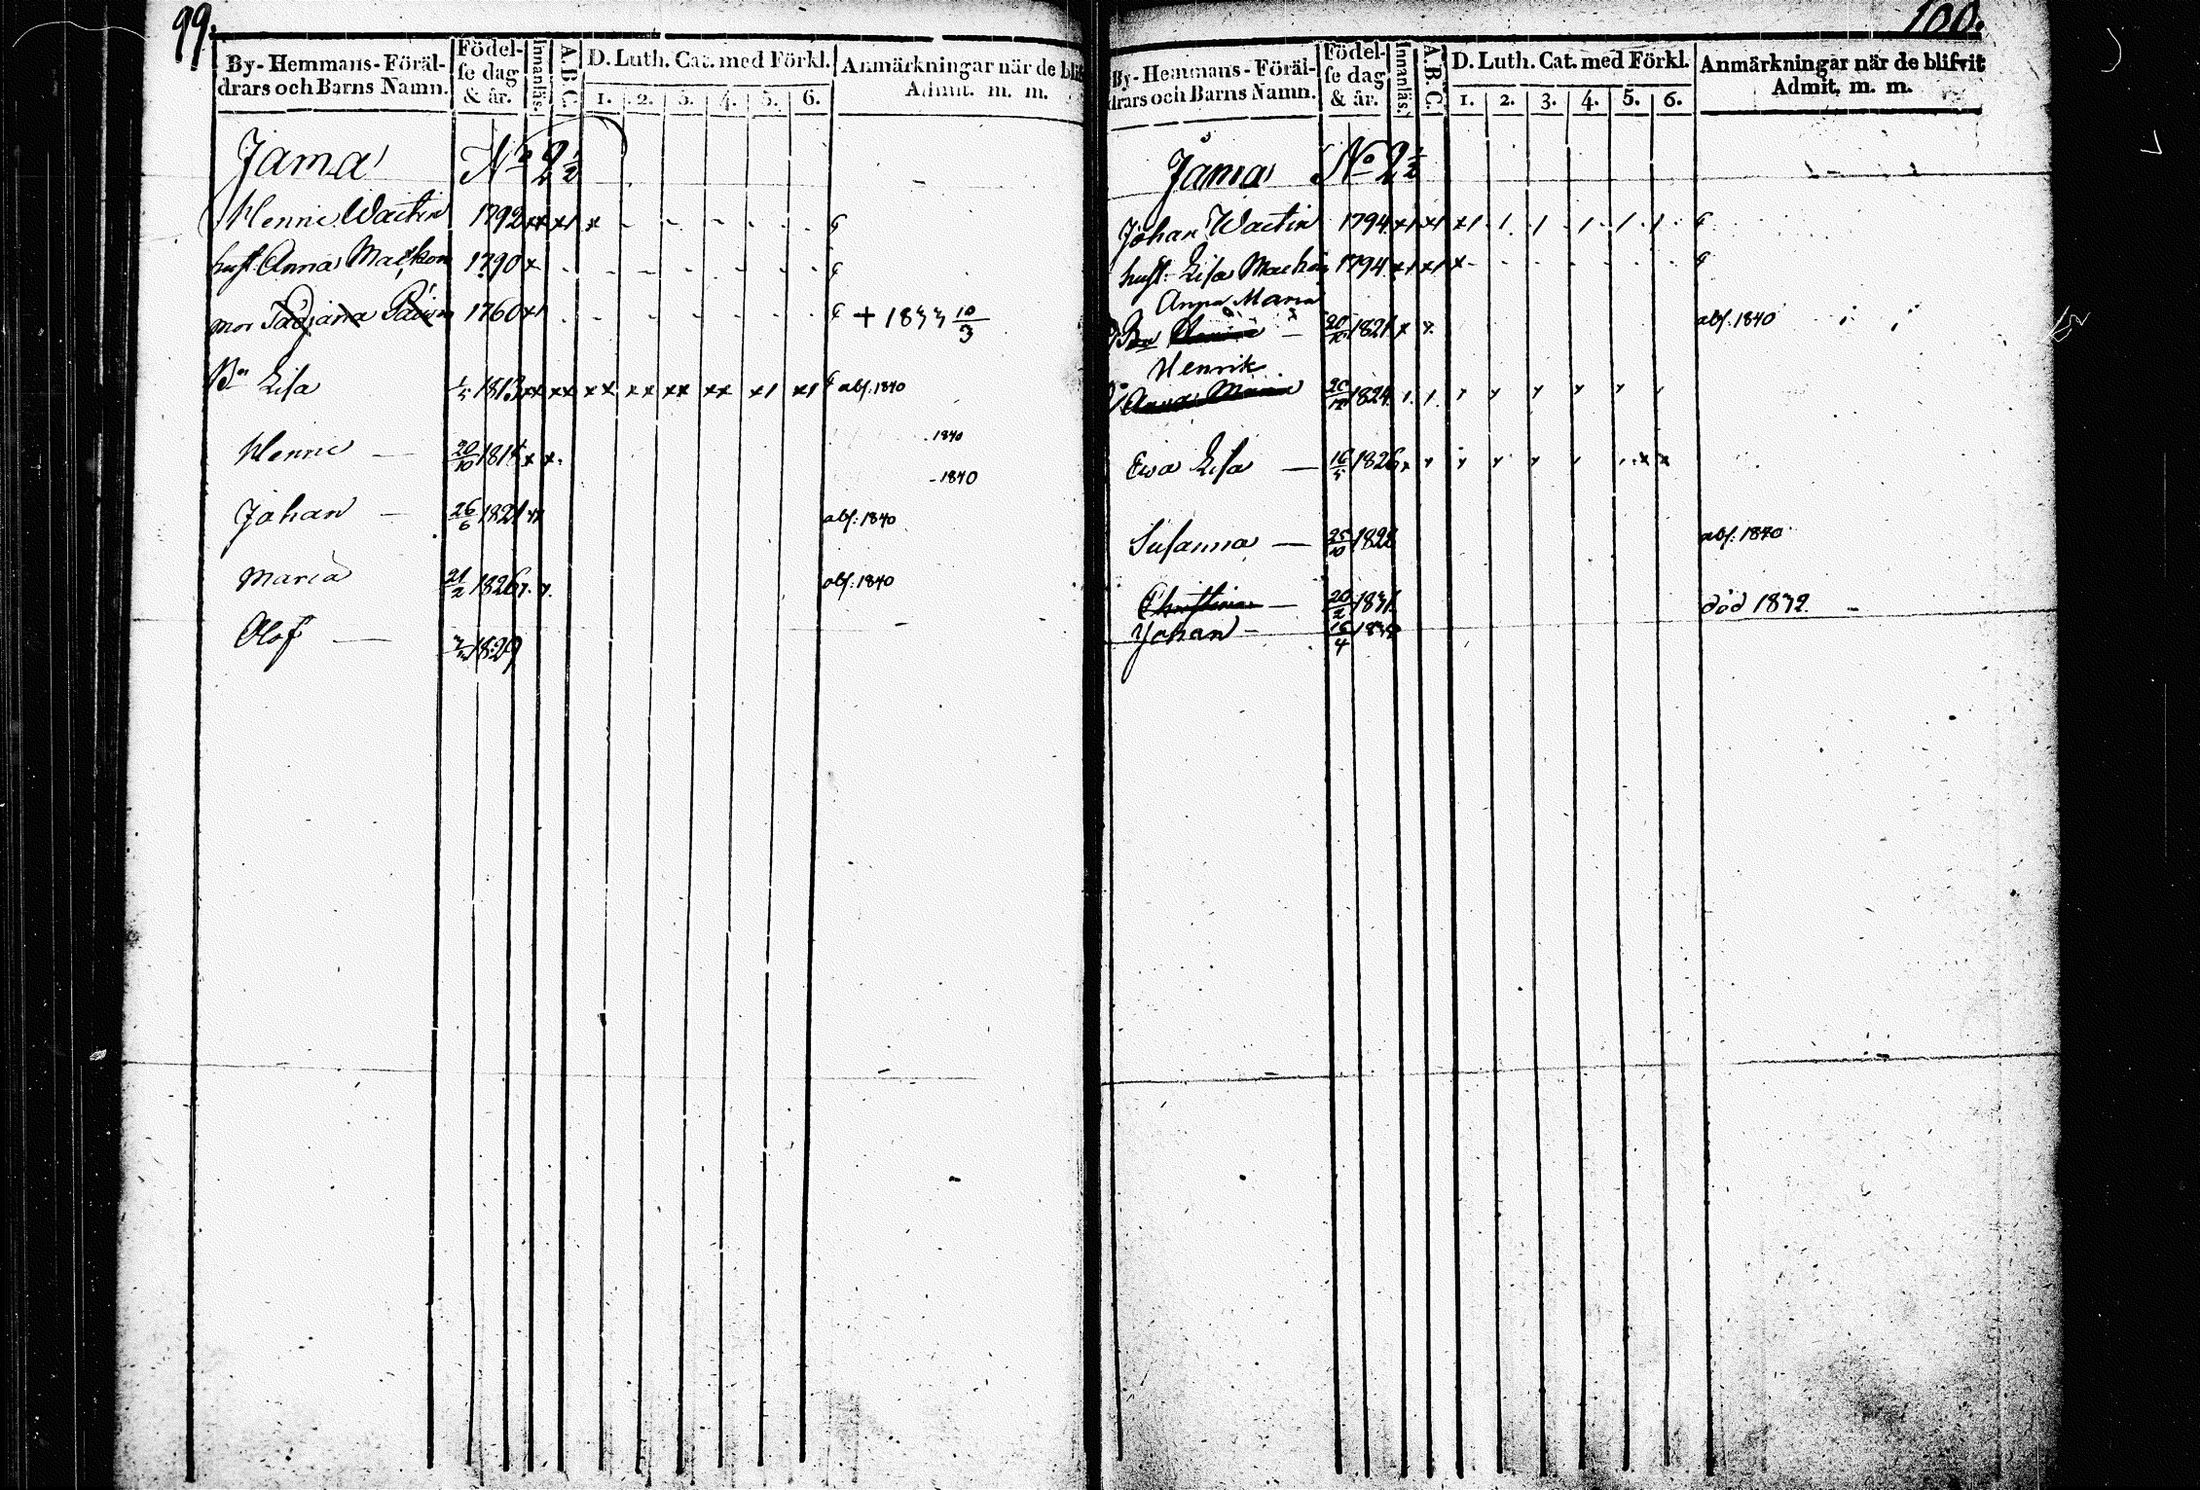 99.
By-Hemmans-Föräl-
drars och Barns Namn.
Födel-
se dag
& år.
Innanläs.
A.B.C.
D. Luth. Cat. med Förkl.
1. 2. 3. 4. 5. 6.
Anmärkningar när de blif
Admit. m. m.
Jama No 2 1/2
Henric Wactin 1792 xx x1 x
hust. Anna Mackon 1790 x
mor 1760 x1 + 1833 10/3
Bn Lisa 1813 xx xx xx xx xx xx x1 x1 abs. 1840
1840
Henric — 20/10 181 x x
-1840
Johan — 26/6 1821 abs: 1840
Maria 21/2 1826 abs: 1840
Olof — 1829
100.
By-Hemmans-Föräl-
drars och Barns Namn.
Födel-
se dag
& år.
Innanläs.
A.B.C.
D. Luth. Cat. med Förkl.
1. 2. 3. 4. 5. 6.
Anmärkningar när de blifvit
Admit. m. m.
Jama No 2 1/2
Johan Wactin 1794 x1 x1 x1 1 1 1 1 1
hust. Lisa 1794 x1 x1 x
Anna Maria
1821 x abs. 1840
Henrik
Anna Maria 1824
Ewa Lisa — 16/5 1826 x
Susanna — 25/10 1828 abs: 1840
Christina — 20/2 183 död 1832.
Johan — 16/4